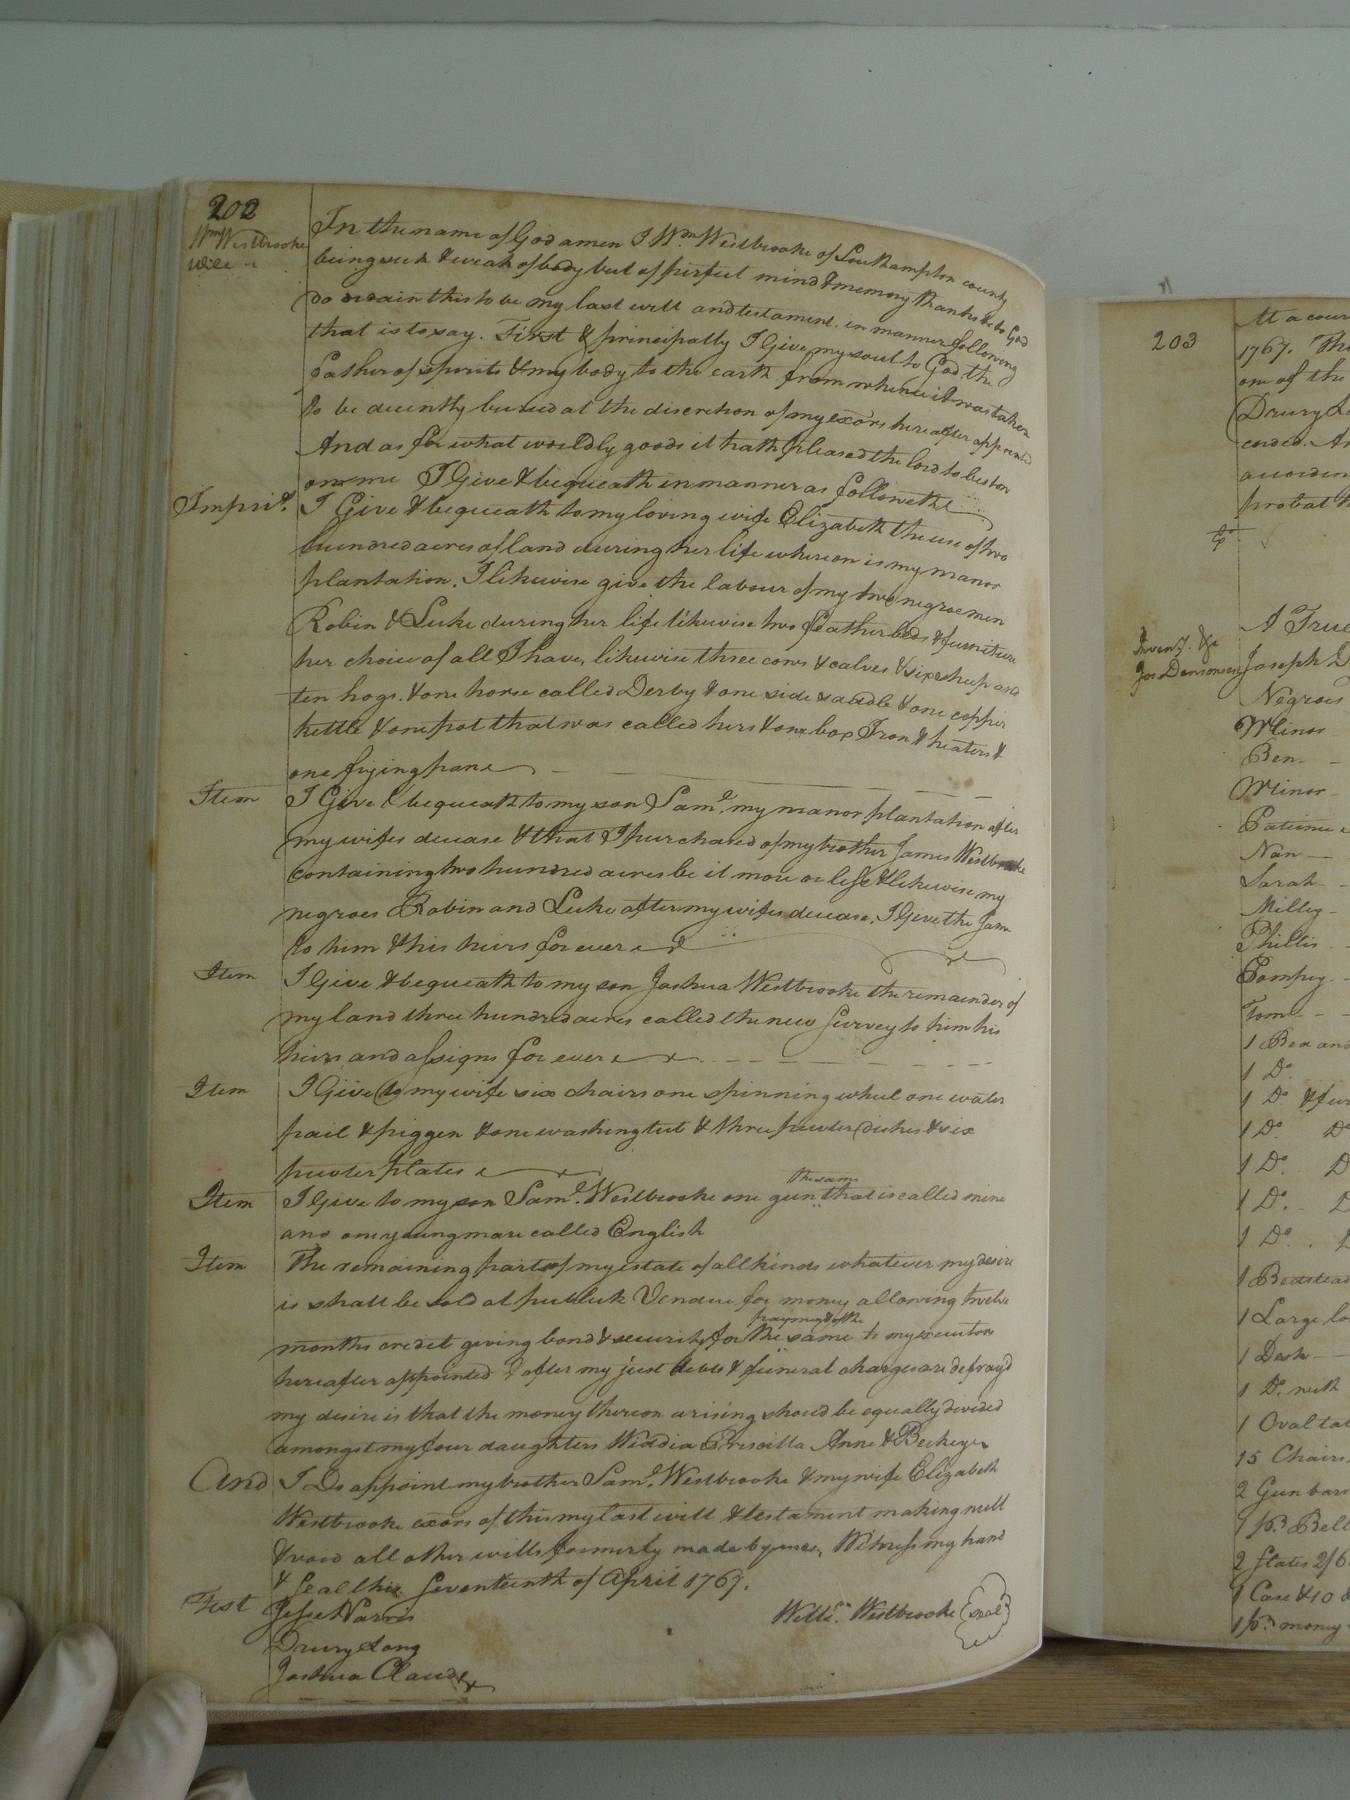 202
Wm Westbrooke
will
In the name of God amen I Wm Westbrooke of Southampton county
being sick & weak of body but of perfect mind & memory thanks be to God
do ordain this to be my last will and testament in manner following
that is to say. First & principally I Give my soul to God the
Father of spirits & my body to the earth from whence it was taken
to be decently buried at the discretion of my exors hereafter appointed
And as for what worldly goods it hath pleased the lord to bestow
on me I Give & bequeath in manner as followeth
Impris. I Give & bequeath to my loving wife Elizabeth the use of two
hundred acres of land during her life whereon is my manor
plantation. I likewise give the labour of my two negroe men
Robin & Luke during her life likewise two feather beds & furniture
her choice of all I have, likewise three cows & calves & six sheep and
ten hogs. & one horse called Derby & one side saddle & one copper
kettle & one pot that was called hers & one box Iron & heaters &
one frying pan
Item I Give & bequeath to my son Saml. my manor plantation after
my wifes decease & that I purchased of my brother James Westbrooke
containing two hundred acres be it more or less & likewise my
negroes Robin and Luke after my wifes decease. I Give the same
to him & his heirs for ever
Item I Give & bequeath to my son Joshua Westbrooke the remainder of
my land three hundred acres called the new survey to him his
heirs and assigns for ever
Item I Give to my wife six chairs one spinning wheel one water
pail & piggen & one washing tub & three pewter dishes & six
pewter plates
the same
Item I Give to my son Saml. Westbrooke one gun that is called mine
and one young mare called English
Item The remaining part of my estate of all kinds whatever my desire
is shall be sold at publick Vendue for money allowing twelve
paying of the
months credit giving bond & security for the same to my executors
hereafter appointed & after my just debts & funeral charges are defray'd
my desire is that the money thereon arising should be equally divided
amongst my four daughters Priscilla Anne &
And I Do appoint my brother Saml. Westbrooke & my wife Elizabeth
Westbrooke exors of this my last will & testament making null
& void all other wills formerly made by me, Witness my hand
& seal this seventeenth of April 1767.
Test Jesse Norris Willm. Westbrooke (seal)
Drury Long
Joshua Claud
203
At a cour
1767. Thi
one of the
Drury Lo
corded. An
accordin
probat
Inventy. &c
Jos Denson
A True
Joseph D
Negroes
Minor
Ben
Minor
Patience
Nan
Sarah
Milley
Phillis
Pompey
Tom
1 Bed and
1 Do
1 Do & fur
1 Do. Do
1 Do. D
1 Do. D
1 Do.
1 Bedstead
1 Large lo
1 Desk
1 Do. with
1 Oval tab
15 Chairs
2 Gun barr
1 pr. Bell
2 slates 2/6
1 Case & 10
1 pr. money